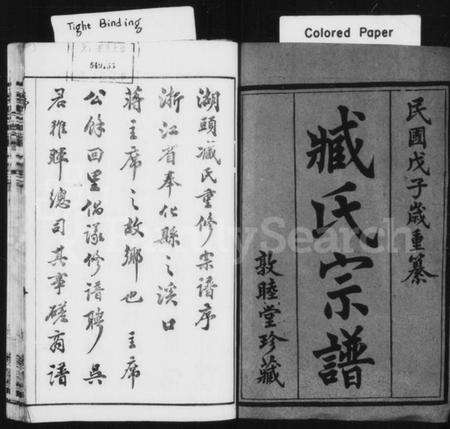 Tight Binding
Colored Paper
549.33
民國戊子歲重纂
臧氏宗譜
敦睦堂珍藏
湖頭臧氏重修宗譜序
浙江省奉化縣之溪口
蔣主席之故鄉也 主席
公餘回里倡議修譜聘 吳
君稚暉總司其事磋商譜